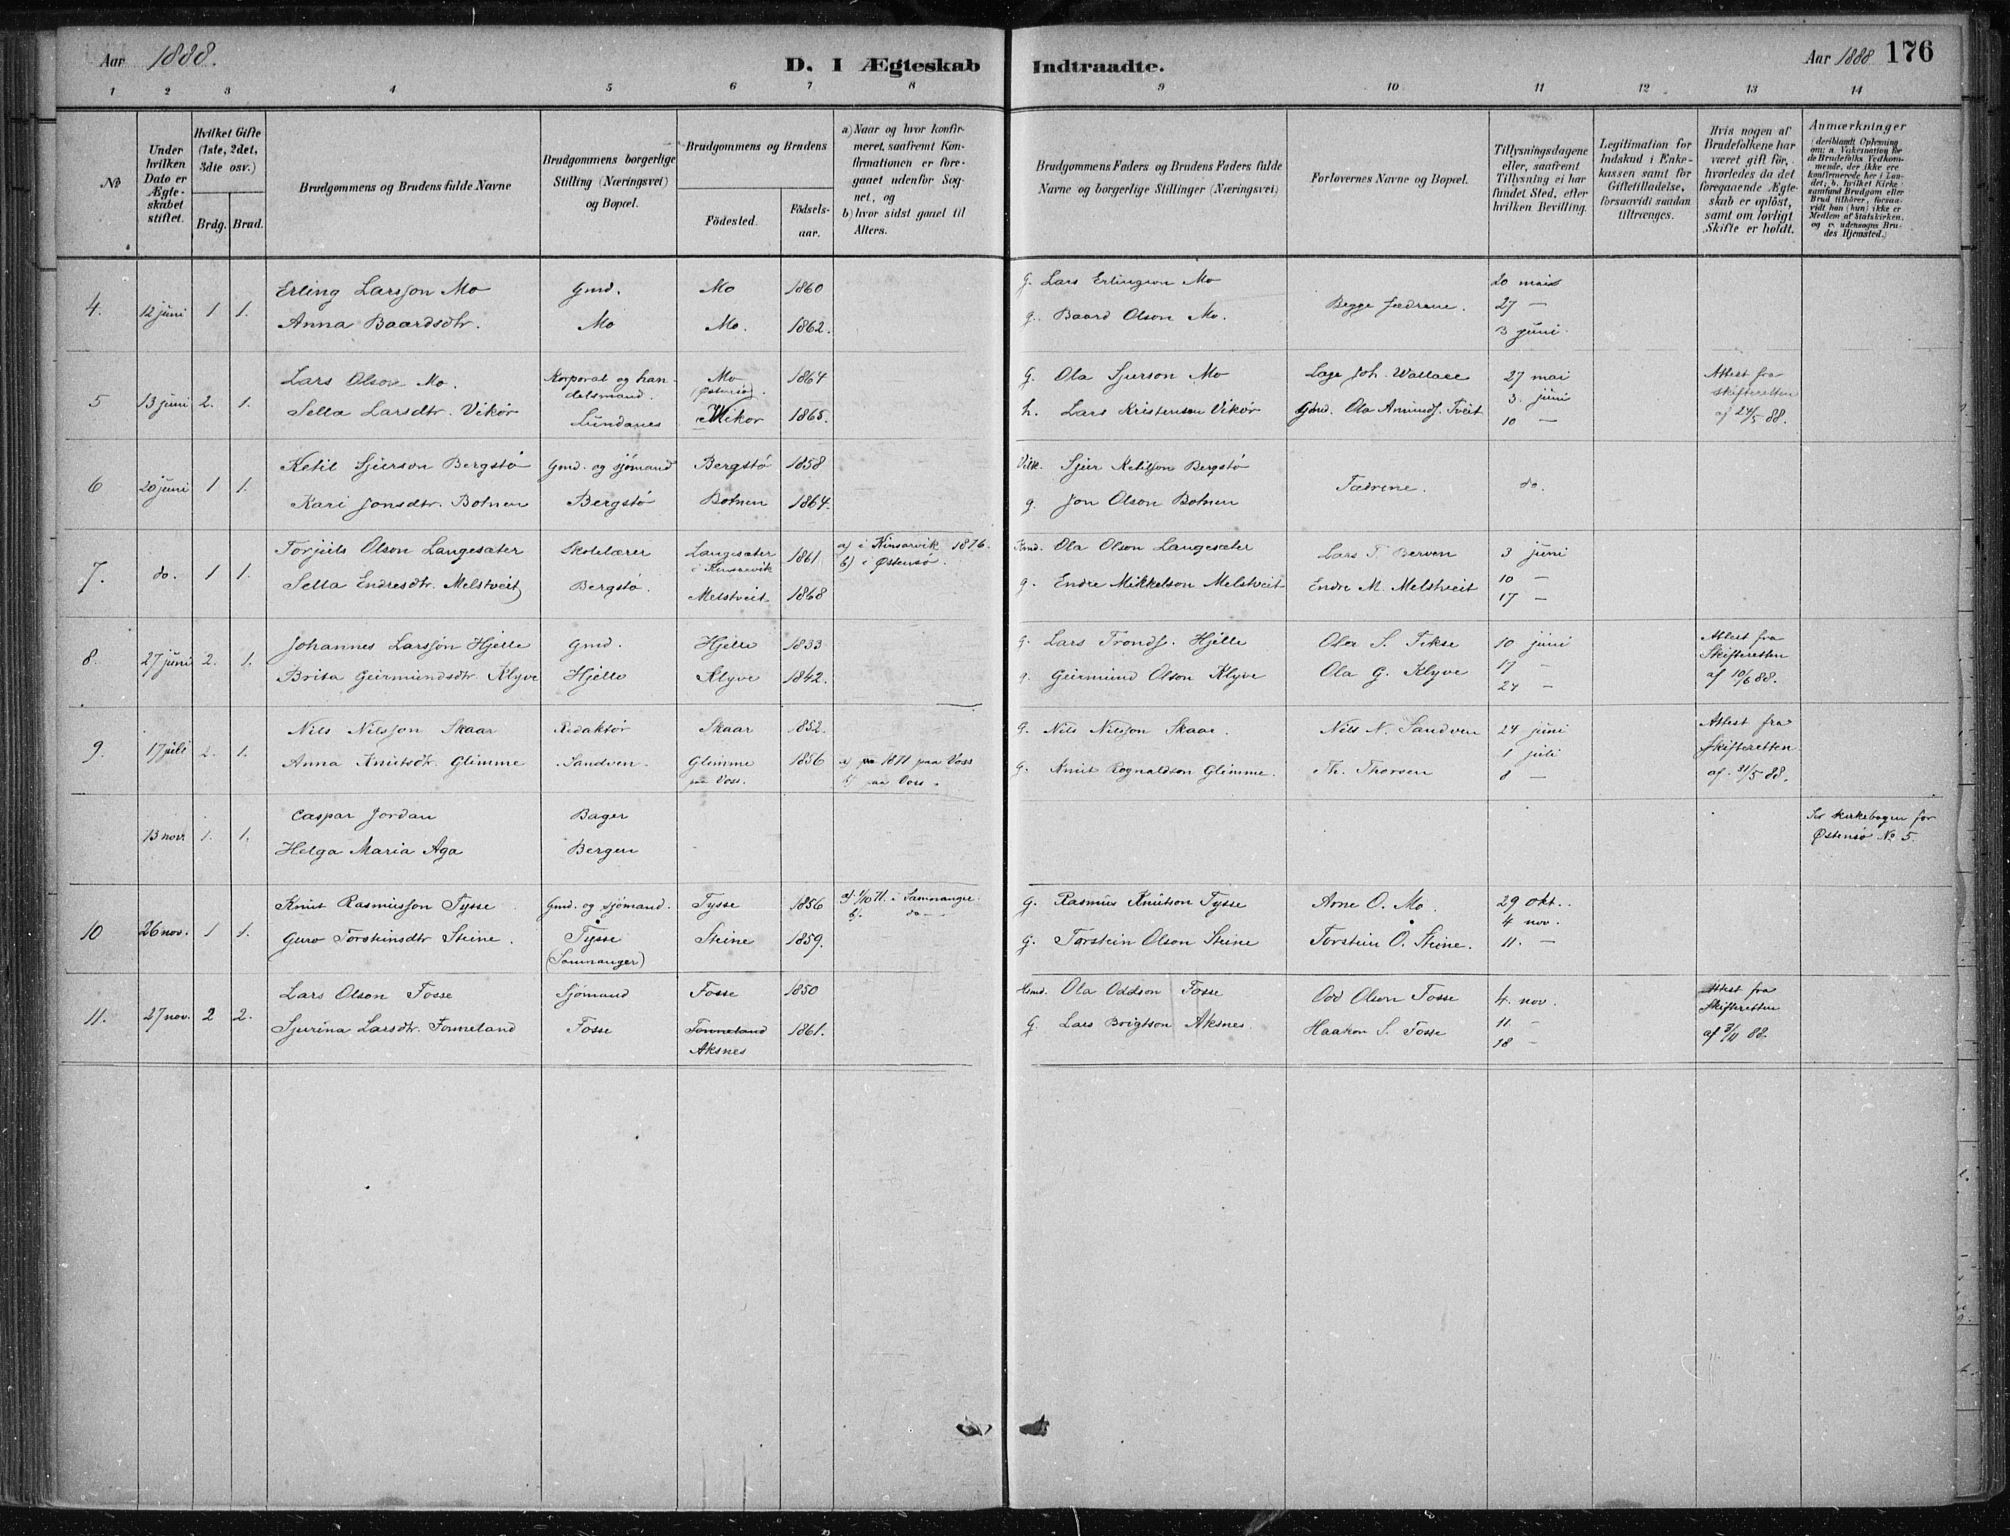 Aar 1888.
D. I Ægteskab Indtraadte.
Aar 1888 176
1 2 3 4 5 6 7 8 9 10 11 12 13 14
No
Under hvilken Dato er Ægteskabet stiftet.
Hvilket Gifte (1ste, 2det, 3die osv.)
Brdg. Brud.
Brudgommens og Brudens fulde Navne
Brudgommens borgerlige Stilling (Næringsvei) og Bopæl.
Brudgommens og Brudens
Fødested.
Fødselsaar.
a) Naar og hvor konfirmeret, saafremt Konfirmationen er foregaaet udenfor Sognet, og
b) hvor sidst gaaet til Alters.
Brudgommens Faders og Brudens Faders fulde Navne og borgerlige Stillinger (Næringsvei)
Forlovernes Navne og Bopæl.
Tillysningsdagene eller, saafremt Tillysning ei har fundet Sted, efter hvilken Bevilling.
Legitimation for Indskud i Enkekassen samt for Giftetilladelse, forsaavidt saadan tiltrænges.
Hvis nogen af Brudefolkene har været gift før, hvorledes da det foregaaende Ægteskab er opløst, samt om lovligt Skifte er holdt.
Anmærkninger (deriblandt Oplysning om: a. Vakcination for de Brudefolks Vedkommende, der ikke ere konfirmerede her i Landet; b. hvilket Kirkesamfund Brudgom eller Brud tilhører, forsaavidt han (hun) ikke er Medlem af Statskirken, og c. udensogns Brudes Hjemsted.)
4. 12 juni 1 1. Erling Larsson Mo Gmd. Mo 1860 G. Lars Erlingson Mo Begge fædrene. 20 mai
Anna Baardsdtr. Mo Mo. 1862. g. Baard Olson Mo. 27 —
3 juni.
5 13 juni 2. 1. Lars Olson Mo. Korporal og handelsmand. Mo (Østensø) 1864 G. Ola Sjurson Mo Lage Joh. Wallace 27 mai Attest fra
Sella Larsdtr. Vikør Lundanes Vikør 1865. h. Lars Kristenson Vikør Gmd. Ola Amundf. Tveit 3. juni skifteretten
10 — af 24/5 88.
6 20 juni 1 1. Ketil Sjurson Bergstø Gmd. og sjömand Bergstø 1858 Sjur Ketilson Bergstø Fædrene. do.
Kari Jonsdtr. Botnen Bergstø Botnen 1864. g. Jon Olson Botnen
7. do. 1 1. Torjeils Olson Langesæter Skolelærer Langesæter i Kinsarvik 1861 a) i Kinsarvik 1876. Ola Olson Langesæter Lars T. Berven 3 juni
b) i Østensø.
Sella Endresdtr. Melstveit Bergstø. Melstveit 1868 g. Endre Mikkelson Melstveit Endre M. Melstveit 10 —
17 —
8. 27 juni 2. 1. Johannes Larsson Hjelle Gmd. Hjelle 1833 g. Lars Trondf. Hjelle S. Fikse 10 juni Attest fra
Brita Geirmundsdtr. Klyve Hjelle Klyve 1842. g. Geirmund Olson Klyve Ola G. Klyve 17 — Skifteretten
24 — af 10/6 88.
9. 17 juli 2. 1. Nils Nilsson Skaar Redaktør Skaar 1852. g. Nils Nilsson Skaar. Nils N. Sandven 24 juni Attest fra
Anna Knutsdtr. Glimme Sandven. Glimme paa Voss. 1856 a) 1871 paa Voss g. Knut Rognaldson Glimme. Th. Thorsen 1 juli Skifteretten
b) paa Voss. 8 — af. 31/5 88.
13 novr. 1. 1. Caspar Jordan Bager Se kirkebogen for
Helga Maria Aga Bergen Østensø No 5.
10 26 nov. 1 1. Knut Rasmusson Tysse Gmd. og sjömand. Tysse 1856 a) 1/10 71. i Samnanger G. Rasmus Knutson Tysse Arne O. Mo. 29 okt.
b. do — 4 nov.
Guro Torsteinsdtr Steine. Tysse (Samnanger) Steine 1859. G. Torstein Olson Steine Torstein O. Steine. 11. —
11. 27 nov. 2 2. Lars Olson Fosse Sjömand Fosse 1850 Hsmd. Ola Oddson Fosse Odd Olson Fosse 4. nov. Attest fra
Sjurina Larsdtr. Tonneland Fosse Tonneland Aksnes 1861. G. Lars Brigtson Aksnes. Haakon S. Fosse 11 — Skifteretten
18 — af 3/11 88.